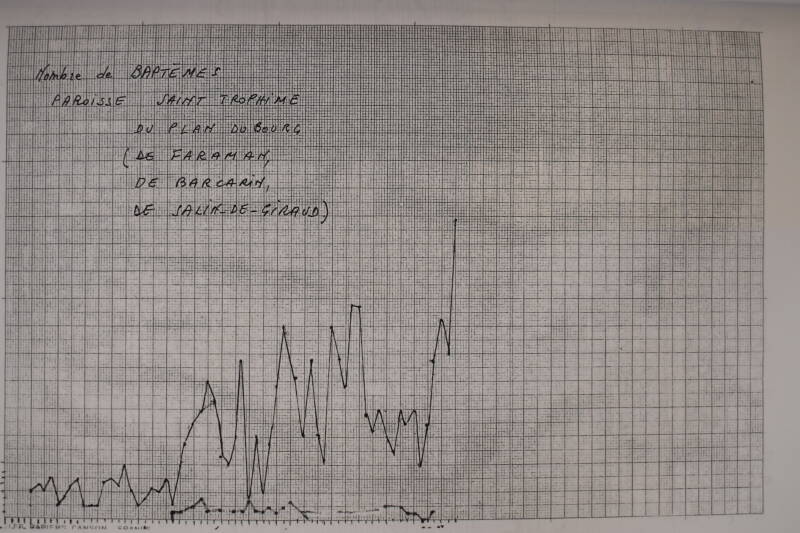 Nombre de BAPTÊMES
PAROISSE SAINT TROPHIME
DU PLAN DU BOURG
(DE FARAMAN,
DE BARCARIN,
DE SALIN-DE-GIRAUD)
CANSON